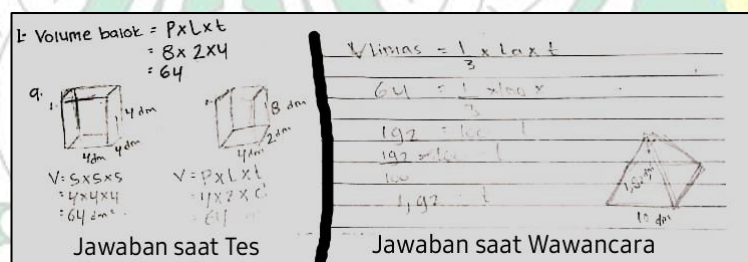 1. Volume balok = P x L x t
= 8 x 2 x 4
= 64
a.
4 dm
4 dm
4 dm
8 dm
2 dm
4 dm
V = S x S x S
= 4 x 4 x 4
= 64 dm
V = P x L x t
= 4 x 2 x 8
= 64
Jawaban saat Tes
V limas = 1/3 x La x t
64 = 1/3 x 100 x
192 = 100 t
192 = 100 t
100
1,92 = t
1,92 dm
10 dm
Jawaban saat Wawancara